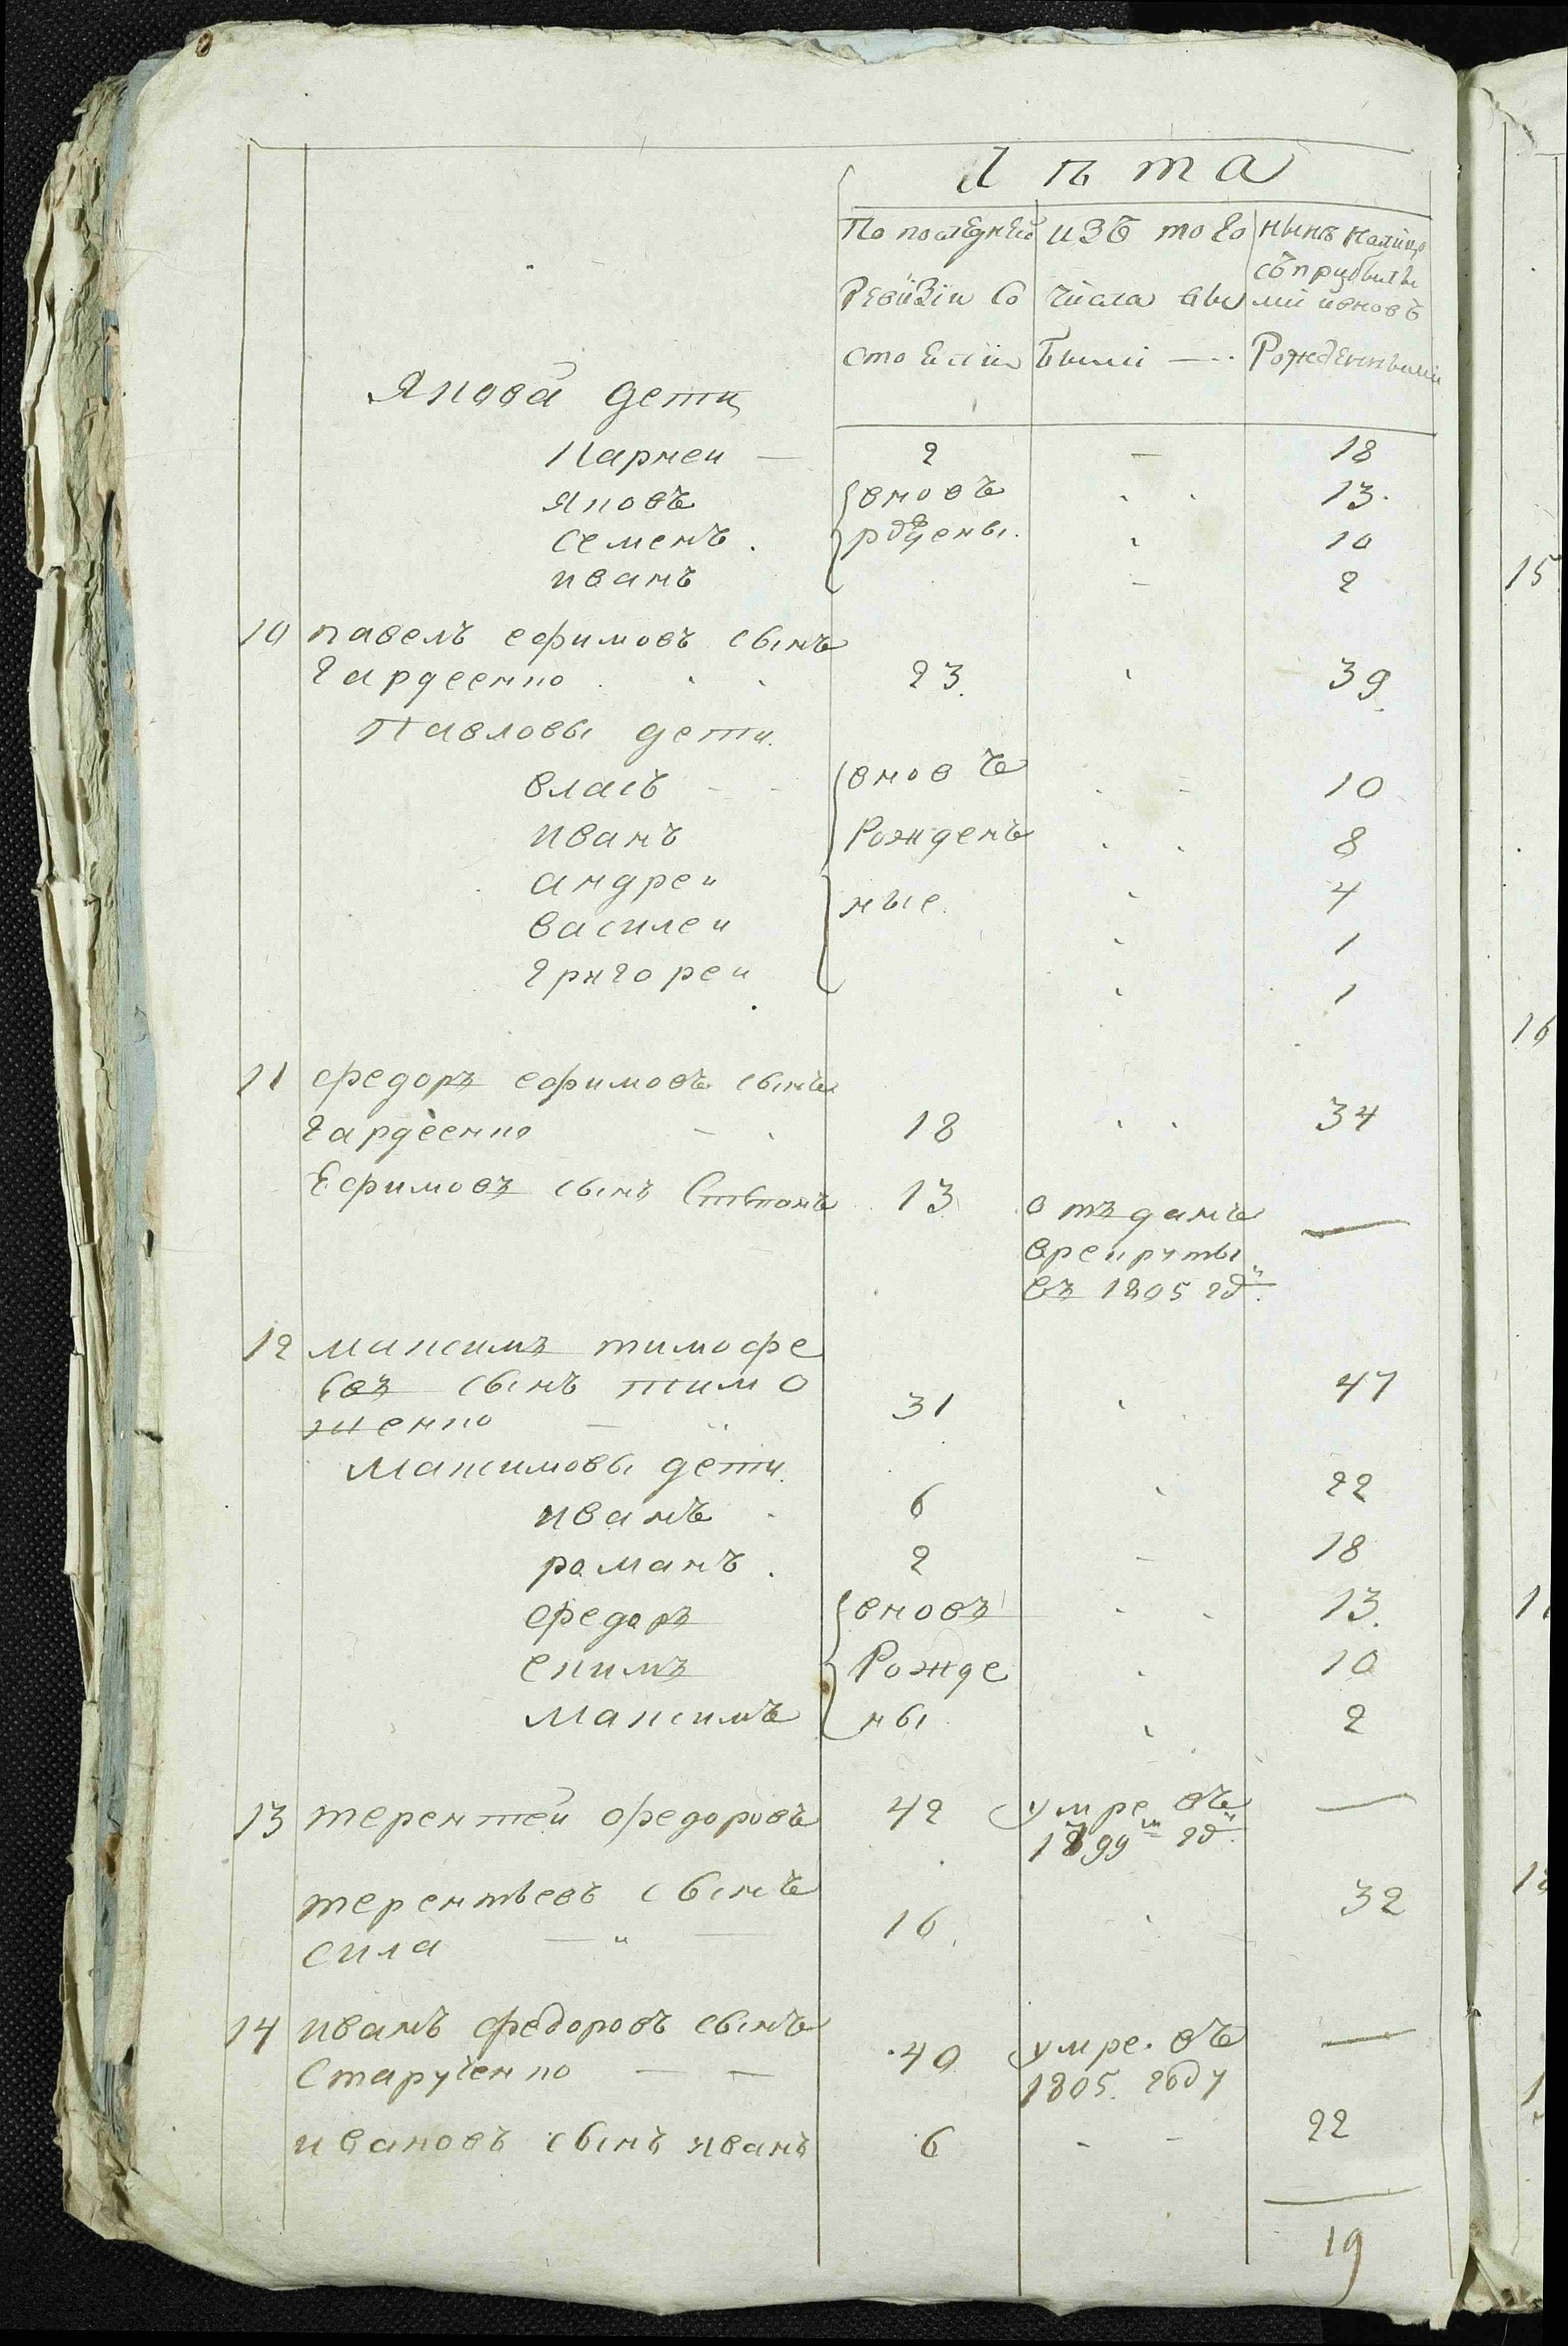 Лѣта
По последней изъ того нынѣ налицо
съ прибылы
Ревизіи со числа вы ми и вновъ
стоели были — Рожденными
Якова дети
Карней — 2 — 18
яковъ вновъ 13
семенъ рождены 10
иванъ — 2
10 павелъ ефимовъ сынъ
гардеенко 23 39
Павловы дети
власъ вновъ 10
иванъ Рожденъ 8
андреи ные 4
василеи 1
григореи 1
11 федоръ ефимовъ сынъ
гардеенко 18 34
Ефимовъ сынъ Степанъ 13 отъданъ —
врекруты
въ 1805 гд
12 максимъ тимофе
евъ сынъ тимо 47
шенко 31
Максимовы дети
иванъ 6 22
романъ 2 — 18
федоръ вновъ 13
екимъ Рожде 10
максимъ ны 2
13 терентеи федоровъ 42 умре въ —
1799м гд
терентьевъ сынъ 32
сила 16
14 иванъ федоровъ сынъ
Старученко 40 умре въ —
1805 году
ивановъ сынъ иванъ 6 22
19
15
16